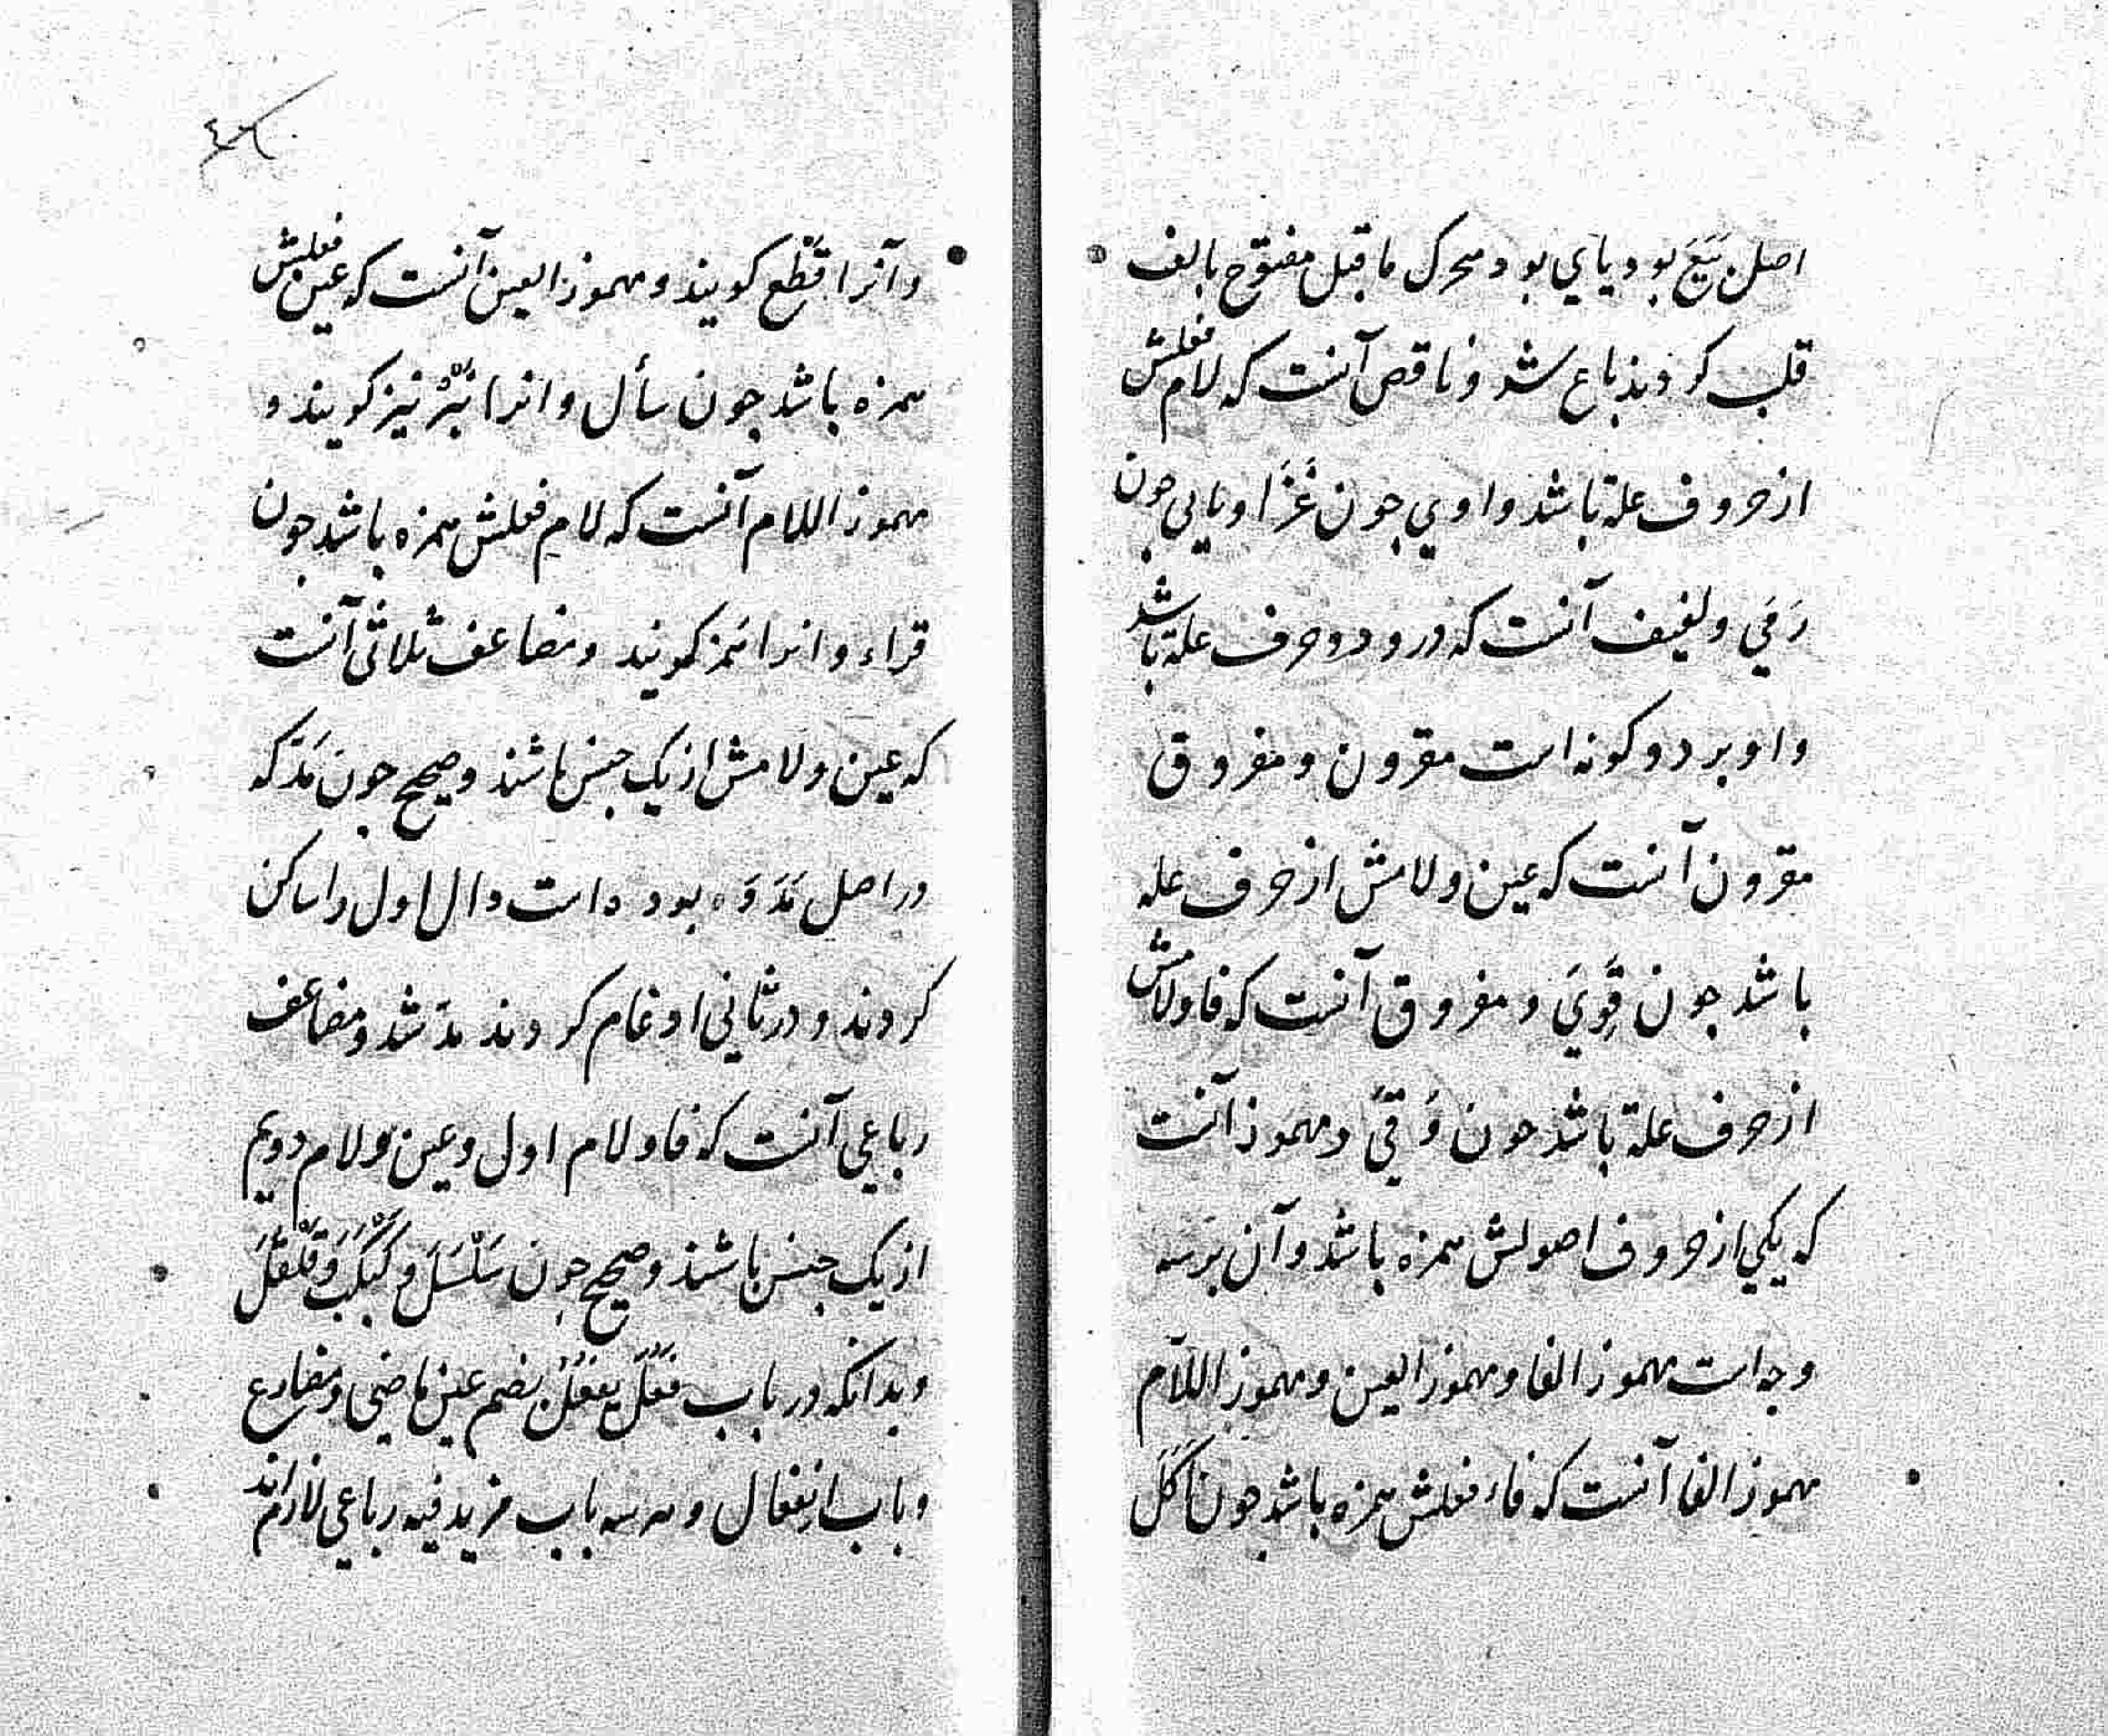 اصل بَیَعَ بود یا‌ي بود محرک ما قبل مفتوح بالف
قلب کردند باع شد و ناقص آنست که لام فعلش
از حروف علة باشد واوي جون غَزَا و یایی جون
رَمَيَ و لفیف آنست که درو دو حرف علة باشد
و او بر دو کونه است مقرون و مفروق
مقرون آنست که عین و لامش از حرف علة
باشد جون قَوِيَ و مفروق آنست که فا و لامش
از حرف علة باشد جون وَقَيَ و مهموز آنست
که یکي از حروف اصولش همزه باشد و آن بر سه
وجه است مهموز الفا و مهموز العین و مهموز اللآم
مهموز الفا آنست که فاء فعلش همزه باشد جون اَکَلَ
و آنرا قَطْع کویند و مهموز العین آنست که عین فعلش
همزه باشد جون سأل و انرا نَبْرْ نیز کویند و
مهموز اللام آنست که لام فعلش همزه باشد جون
قراء و انرا هَمْز کویند و مضاعف ثلاثی آنست
که عین و لامش از یک جنس باشند و صحیح جون مَدَّ که
در اصل مَدَدَ بوده است دال اول را ساکن
کردند و در ثاني ادغام کردند مدَّ شد و مضاعف
رباعي آنست که فا و لام اول و عین و لام دویم
از یک جنس باشند و صحیح جون سَلْسَلَ و کَبْکَبَ وَ قَلْقَلَ
و بدانکه در باب فَعُلَ یَفْعُلُ بضم عین ماضي و مضارع
و باب اِنفعال و هر سه باب مزید فیه رباعي لازم‌اند